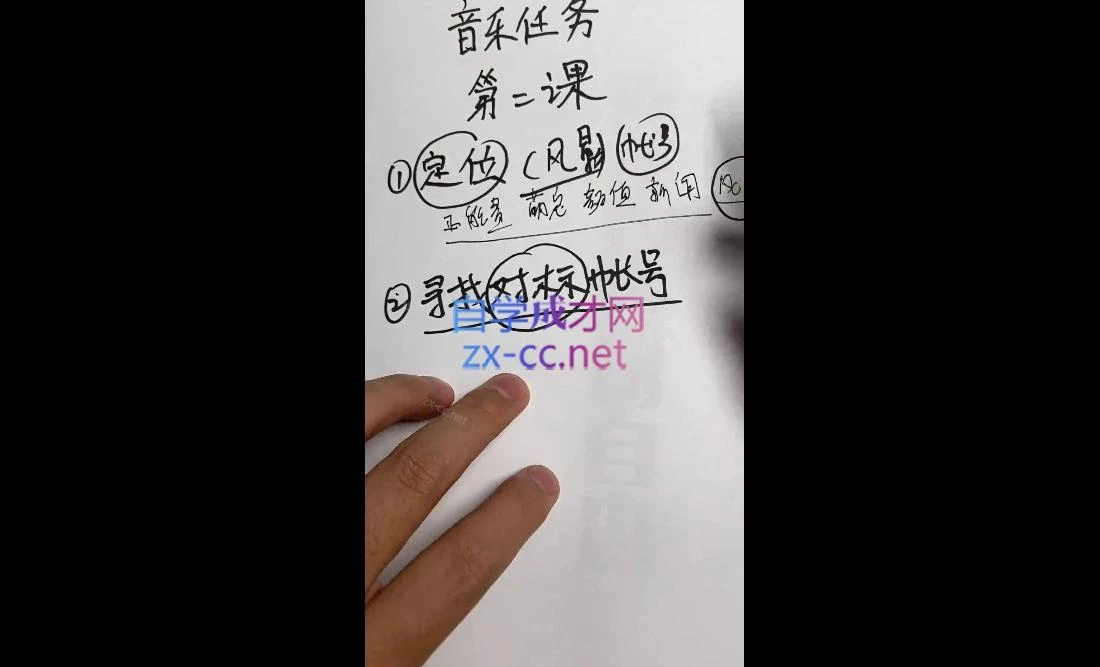 音乐任务
第二课
① 定位 (风景) 帐号
正能量 萌宠 颜值 新闻
② 寻找对标帐号
自学成才网
zx-cc.net
zx-cc.net